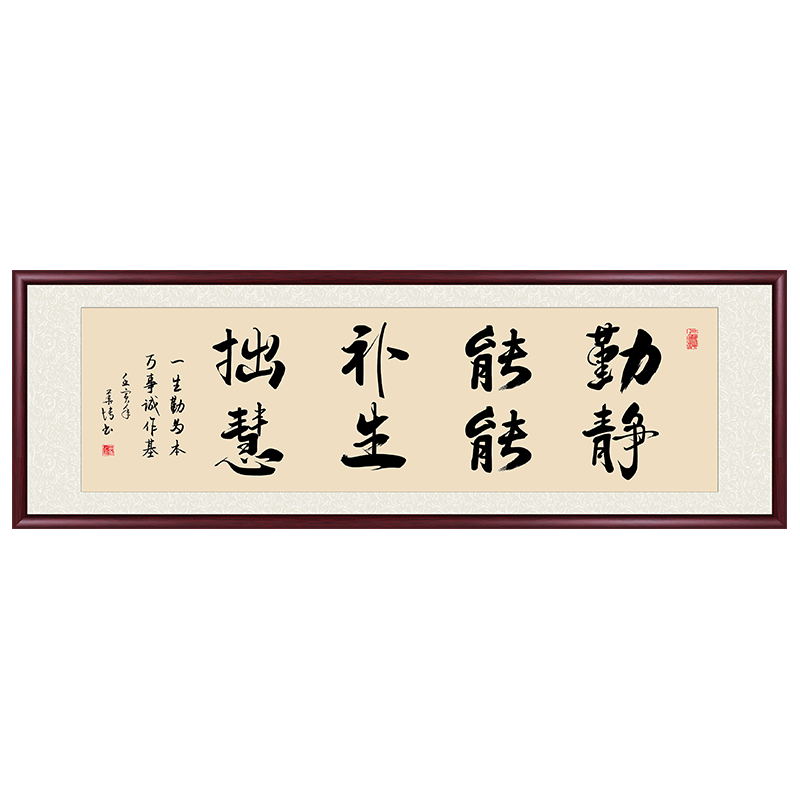 勤能补拙
静能生慧
一生勤为本
万事诚作基
壬寅年
书